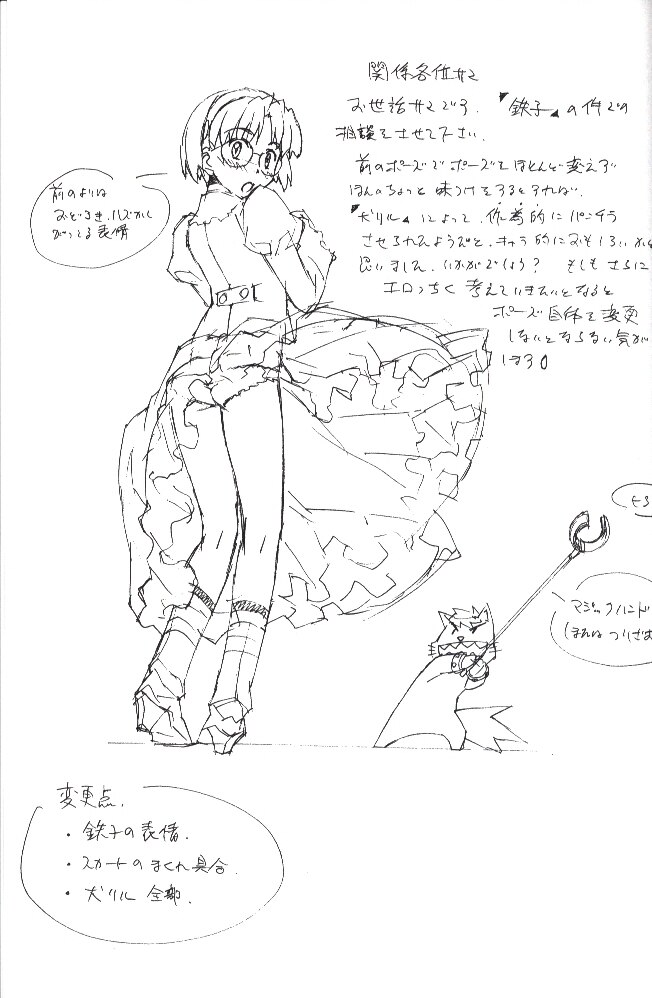 関係各位サマ
お世話サマです。『鉄子』の件での
相談をさせて下さい。
前のポーズでポーズをほとんど変えず
ほんのちょっと味つけをするとすれば、
『犬リル』によって、作為的にパンチラ
させられたようだと、キャラ的におもしろいかと
思いました。いかがでしょう? もしもさらに
エロっちく考えていきたいとなると
ポーズ自体を変更
しないとならない気が
します。
前のよりは
おどろき、ハズかし
がってる表情
マジックハンド
変更点。
・鉄子の表情。
・スカートのまくれ具合。
・犬リル 全部。